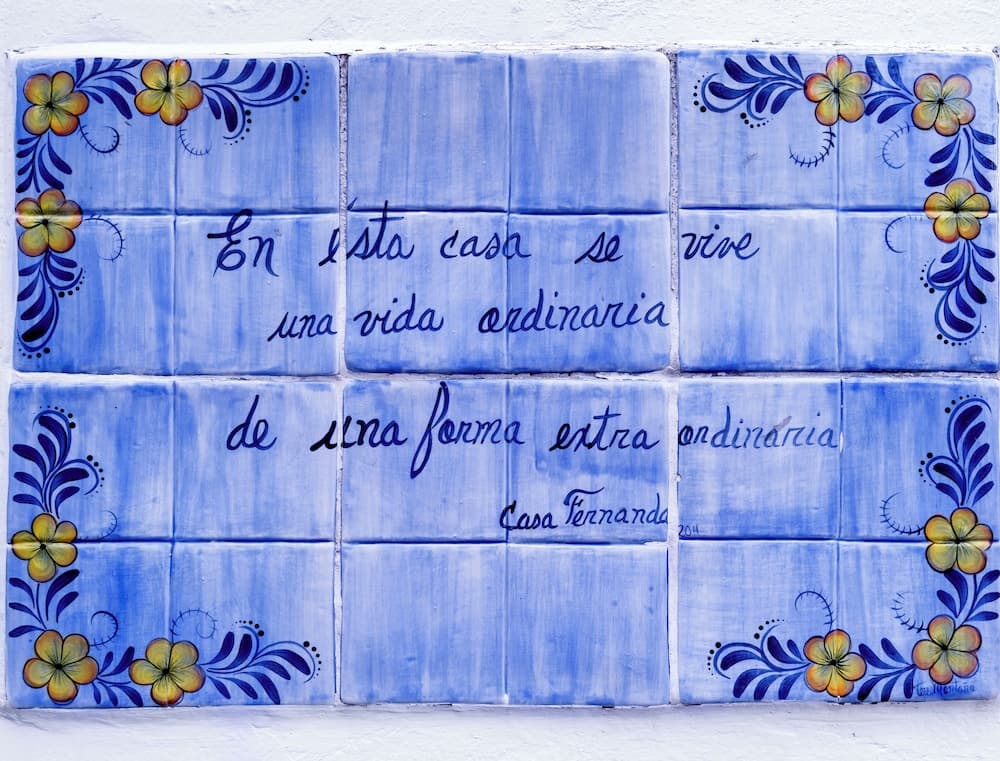 En ésta casa se vive
una vida ordinaria
de una forma extra ordinaria
Casa Fernanda
2011